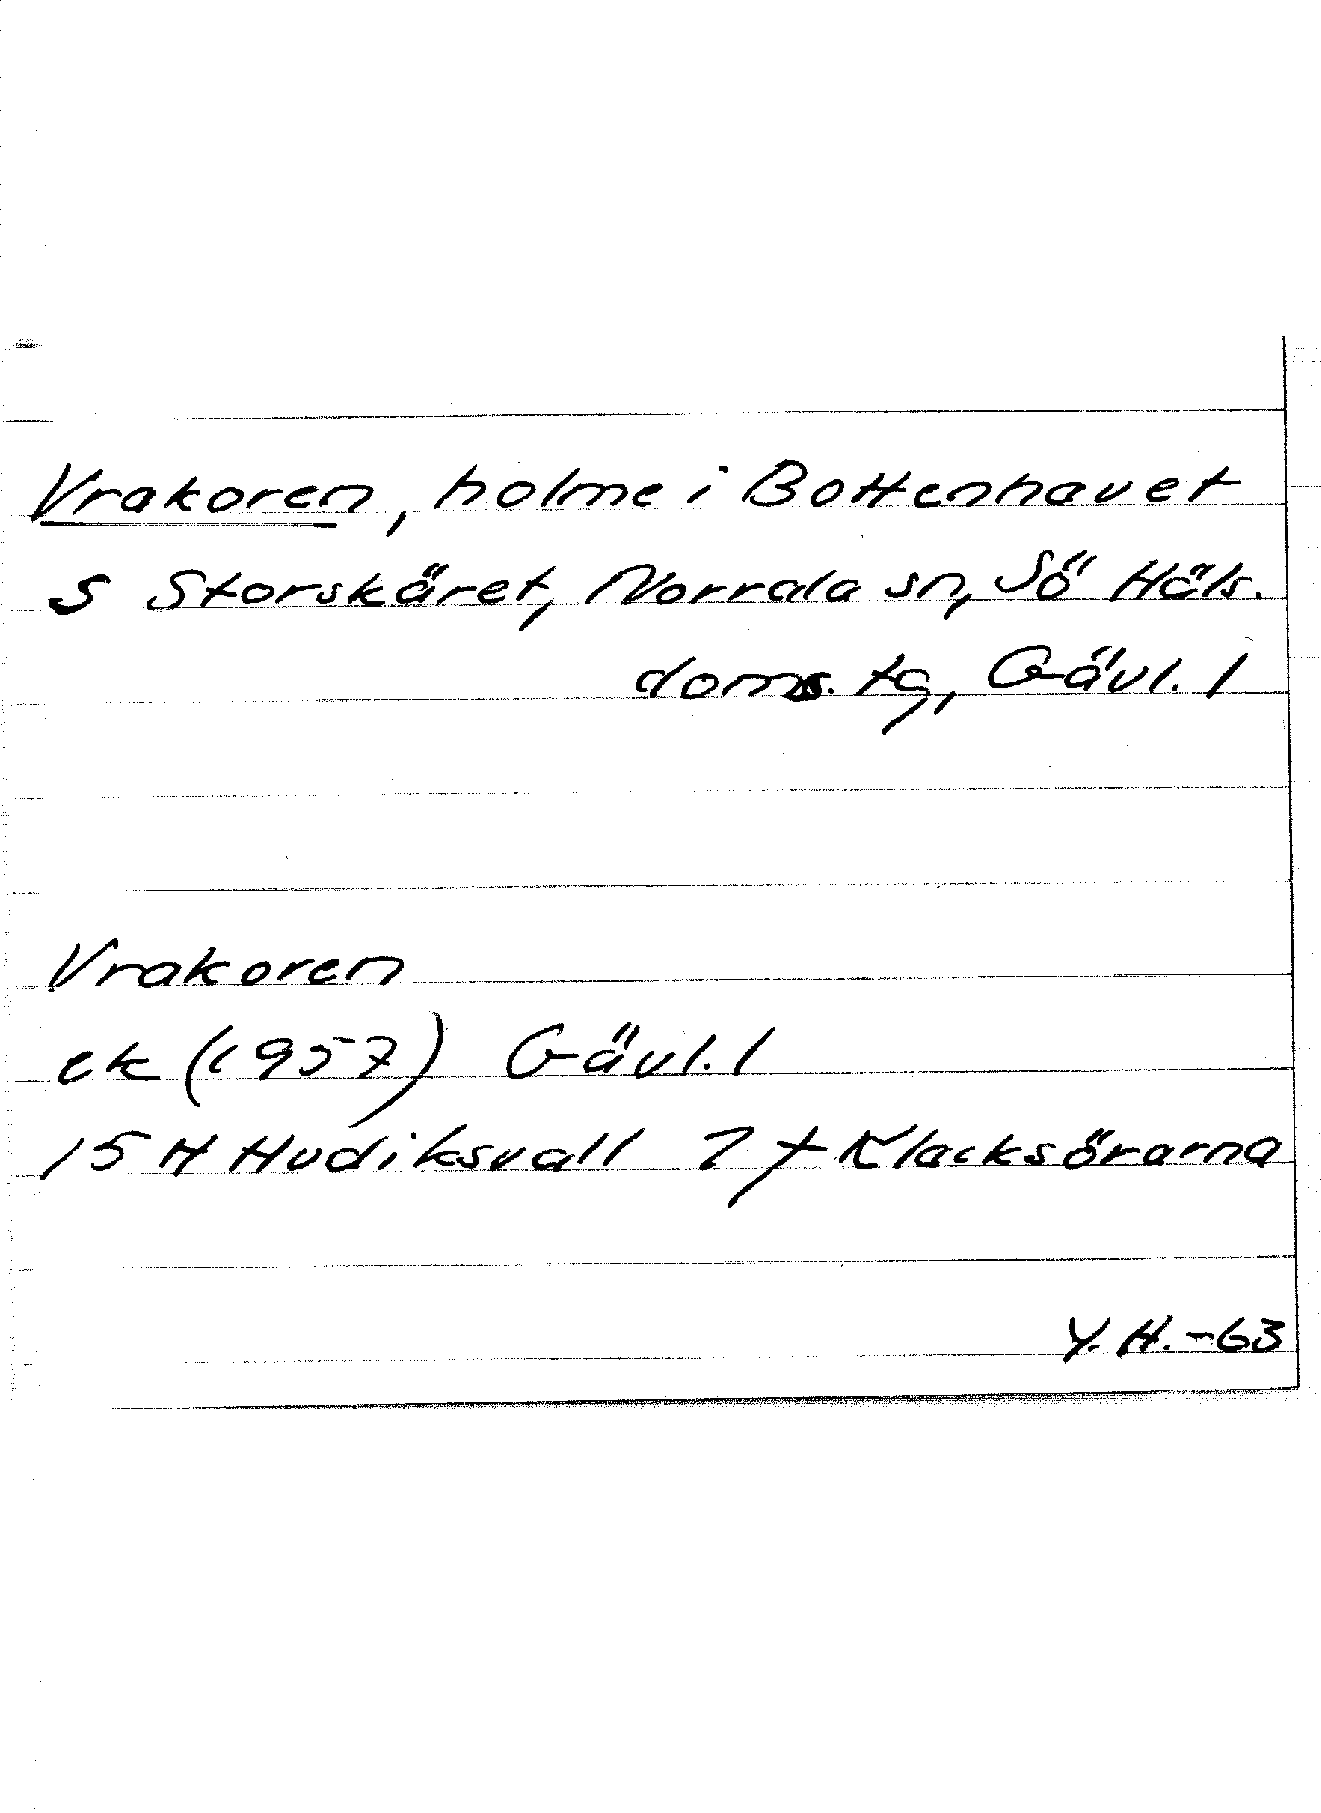 Vrakoren, holme i Bottenhavet
S Storskäret, Norrala sn, Sö Häls.
doms. tg, Gävl. l
Vrakoren
ek (1957) Gävl. l
15 H Hudiksvall 7 f Klacksörarna
Y. H. -63